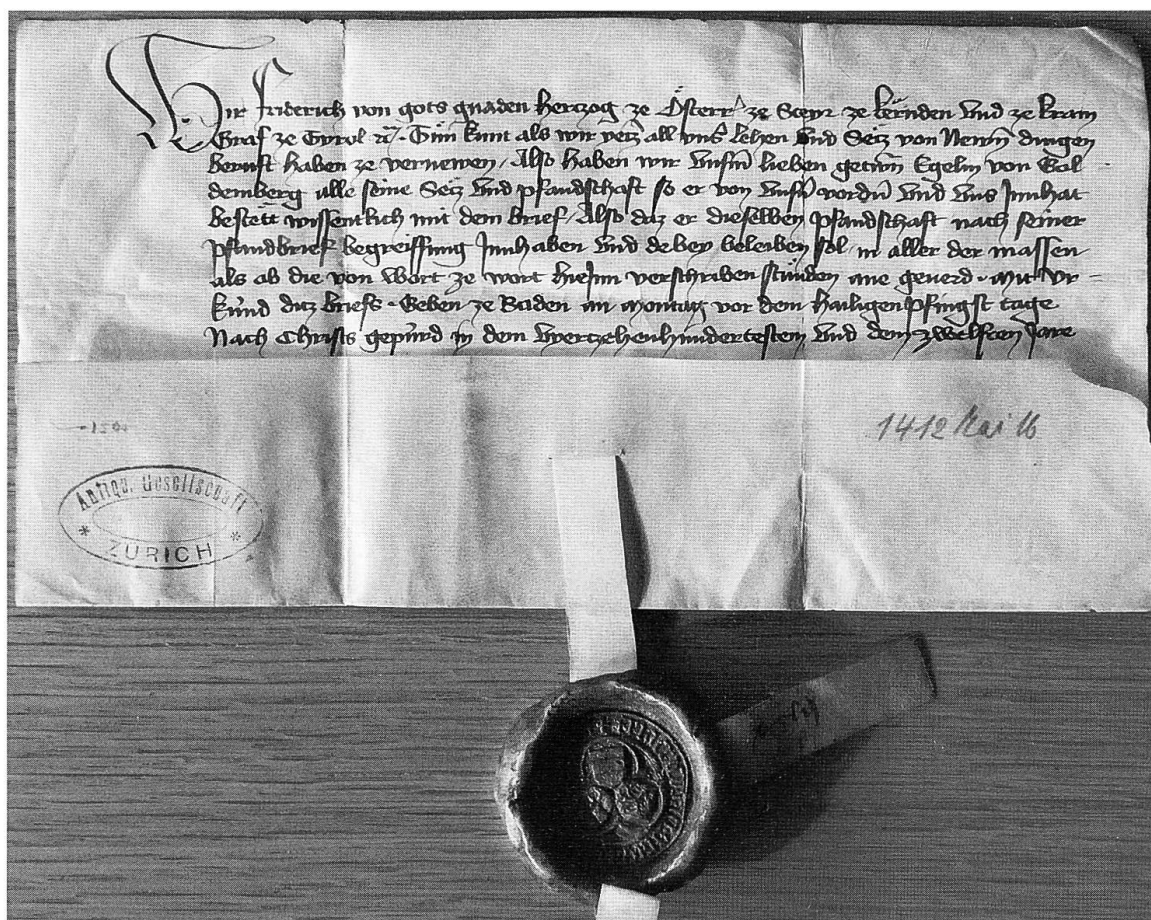 Wir Fridreich von gots gnaden Hertzog ze Österr' ze Steyr ze kërnden Vnd ze krain
Graf ze Tyrol &c. Tůn kunt als wir yetz all vnsr lehen Vnd Sëtz von Newn dingen
berüft haben ze vernewen / Also haben wir Vnserm lieben getrewn Egelin von Gol
demberg alle seine Sëtz Vnd phandschaft so er von Vnsern vordern Vnd Vns Innhat
bestëtt wissentlich mit dem brief / Also daz er dieselben phandschaft nach seiner
phandbrief begreiffung Innhaben Vnd da bey beleiben sol in aller der massen
als ob die von Wort ze wort hieInn verschriben stůnden ane geuerd · Mit Vr=
kůnd diz briefs · Geben ze Baden an Montag vor dem Hailigen Phingst tage
Nach Christs gepůrd in dem Viertzehenhundertesten Vnd dem zwelften Jare
1412 Mai 16
Antiqu. Gesellschaft
* ZÜRICH *